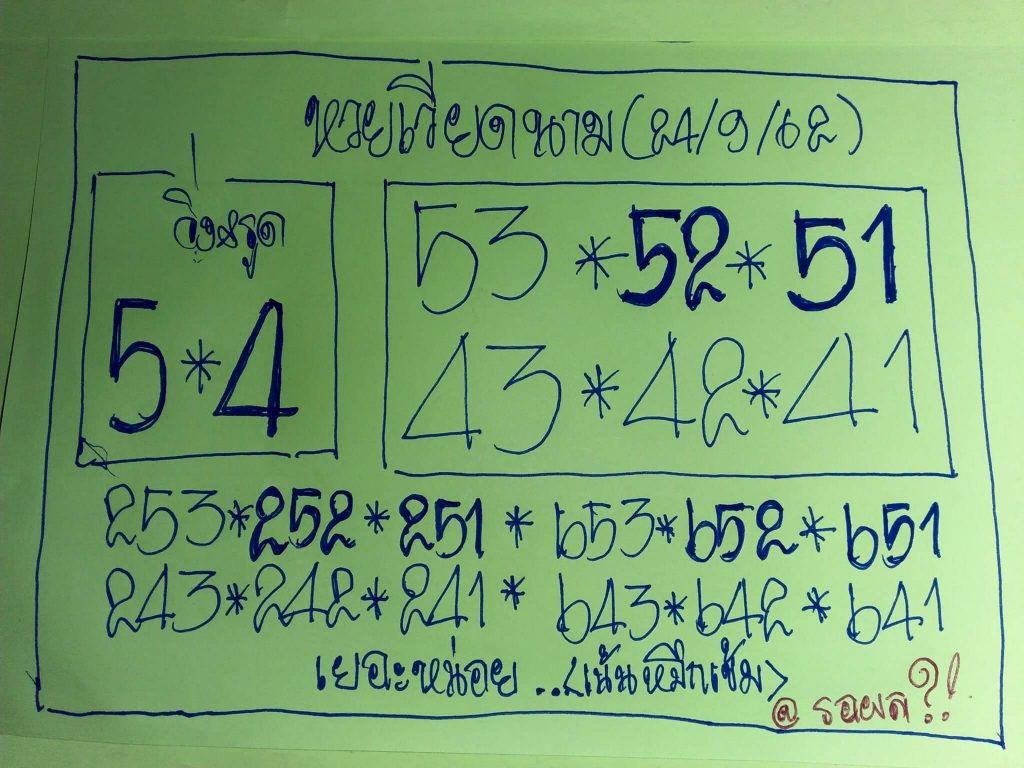 หวยเวียดนาม(24/9/62)
วิ่งรูด
5*4
53*52*51
43*42*41
253*252*251*653*652*651
243*242*241*643*642*641
เยอะหน่อย..<เน้นหมึกเข้ม>
@ รอผล?!